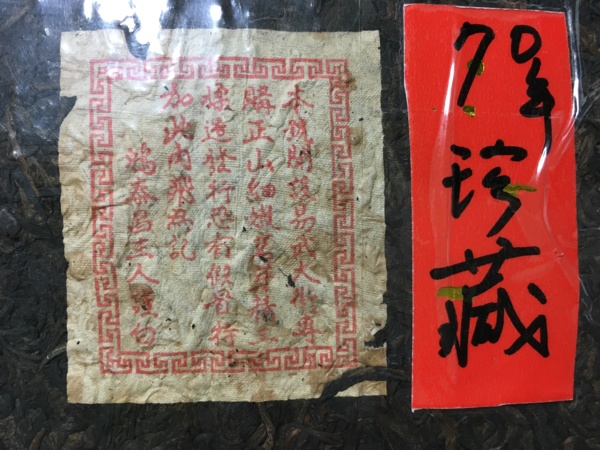 本號開設易武大街專
購正山細嫩茗芽精工
揉造發行恐有假冒特
加此內飛為記
鴻泰昌主人謹白
70年
珍藏